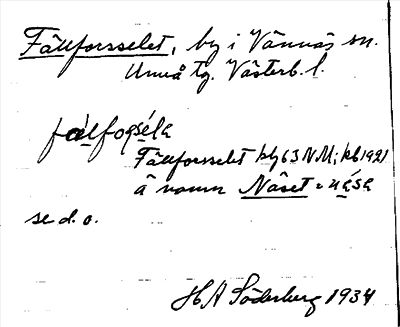 Fällforsselet, by i Vännäs sn.
Umeå tg. Västerb. l.
fälfoqséla
Fällforsselet kly 63 N.M; kb 1921
ä namn Näset = nása
se d.o.
HA Söderberg 1934